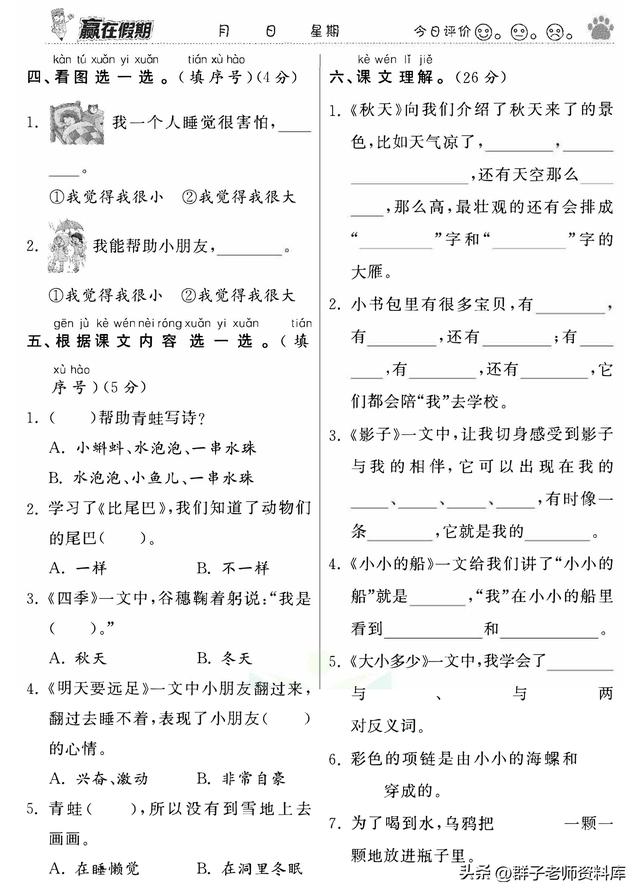 赢在假期 月 日 星期 今日评价 。 。 。
kàn tú xuǎn yi xuǎn tián xù hào
四、看图选一选。(填序号)(4分)
1. 我一个人睡觉很害怕,____
____。
①我觉得我很小 ②我觉得我很大
2. 我能帮助小朋友,________。
①我觉得我很小 ②我觉得我很大
gēn jù kè wén nèi róng xuǎn yi xuǎn tián
五、根据课文内容选一选。(填
xù hào
序号)(5分)
1. ( )帮助青蛙写诗?
A. 小蝌蚪、水泡泡、一串水珠
B. 水泡泡、小鱼儿、一串水珠
2. 学习了《比尾巴》,我们知道了动物们
的尾巴( )。
A. 一样 B. 不一样
3. 《四季》一文中,谷穗鞠着躬说:“我是
( )。”
A. 秋天 B. 冬天
4. 《明天要远足》一文中小朋友翻过来,
翻过去睡不着,表现了小朋友( )
的心情。
A. 兴奋、激动 B. 非常自豪
5. 青蛙( ),所以没有到雪地上去
画画。
A. 在睡懒觉 B. 在洞里冬眠
kè wén lǐ jiě
六、课文理解。(26分)
1. 《秋天》向我们介绍了秋天来了的景
色,比如天气凉了,________,______
______________,还有天空那么____
____,那么高,最壮观的还有会排成
“________”字和“________”字的
大雁。
2. 小书包里有很多宝贝,有________,
有________,还有________;有____
____,有________,还有________,它
们都会陪“我”去学校。
3. 《影子》一文中,让我切身感受到影子
与我的相伴,它可以出现在我的
____、____、____、____,有时像一
条________,它就是我的________。
4. 《小小的船》一文给我们讲了“小小的
船”就是______,“我”在小小的船里
看到__________和__________。
5. 《大小多少》一文中,我学会了______
与 、 与 两
对反义词。
6. 彩色的项链是由小小的海螺和
穿成的。
7. 为了喝到水,乌鸦把 一颗一
颗地放进瓶子里。
头条@群子老师资料库